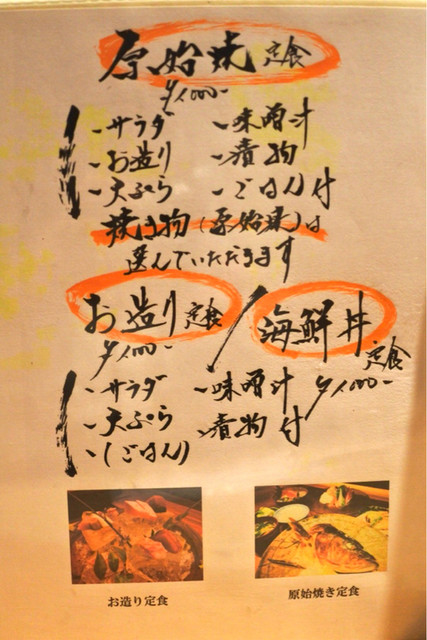 原始焼 定食
¥1,000-
-サラダ -味噌汁
-お造り -漬物
-天ぷら -ごはん付
焼き物(原始焼)は
選んでいただきます
お造り定食
¥1,000-
海鮮丼
定食
¥1,000-
-サラダ -味噌汁
-天ぷら -漬物 付
-(ごはん)
お造り定食
原始焼き定食